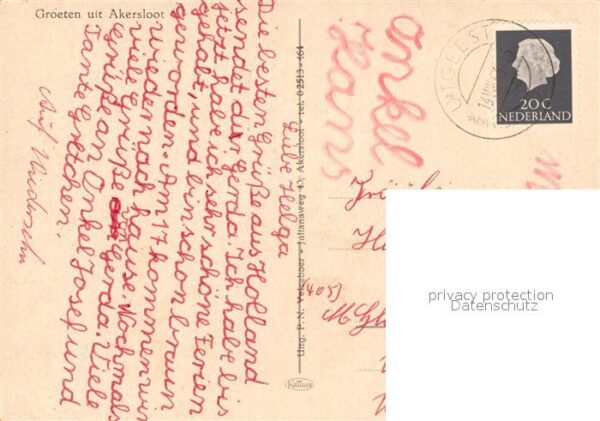 Groeten uit Akersloot
Liebe Helga
Die besten Grüße aus Holland
sendet dir Gerda. Ich habe bis
jetzt habe ich sehr schöne Ferien
gehabt, und bin schon braun
geworden. Am 17 kommen wir
wieder nach hause. Nochmals
viele Grüße von Gerda. Viele
Grüße an Onkel Josef und
Tante Gretchen.
Auf Wiedersehn
Onkel
Hans
Uitg. P. N. - Julianaweg 43, Akersloot - tel. 02513-464
UITGEEST
20 C
NEDERLAND
(405)
privacy protection
Datenschutz